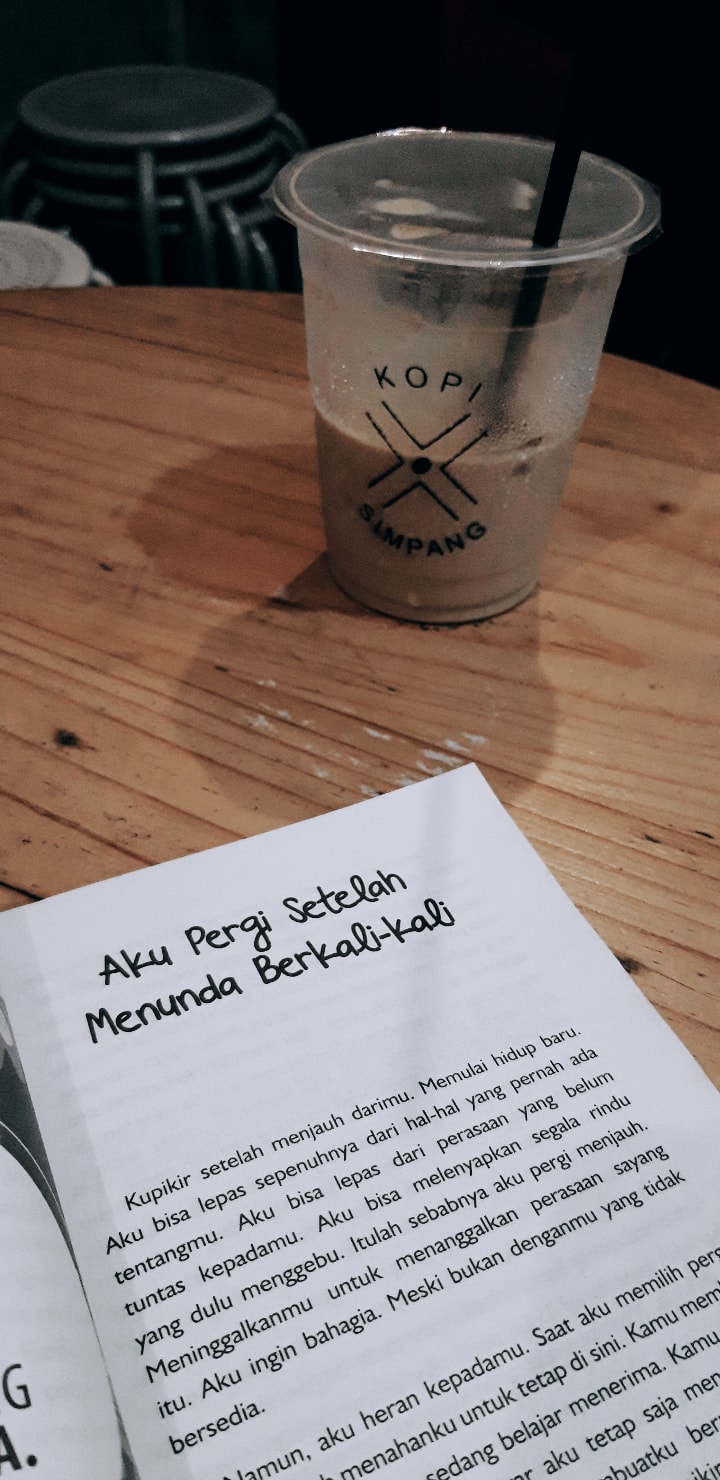 KOPI
SIMPANG
Aku Pergi Setelah
Menunda Berkali-kali
Kupikir setelah menjauh darimu. Memulai hidup baru.
Aku bisa lepas sepenuhnya dari hal-hal yang pernah ada
tentangmu. Aku bisa lepas dari perasaan yang belum
tuntas kepadamu. Aku bisa melenyapkan segala rindu
yang dulu menggebu. Itulah sebabnya aku pergi menjauh.
Meninggalkanmu untuk menanggalkan perasaan sayang
itu. Aku ingin bahagia. Meski bukan denganmu yang tidak
bersedia.
Namun, aku heran kepadamu. Saat aku memilih
menahanku untuk tetap di sini. Kamu
sedang belajar menerima. Kamu
aku tetap saja